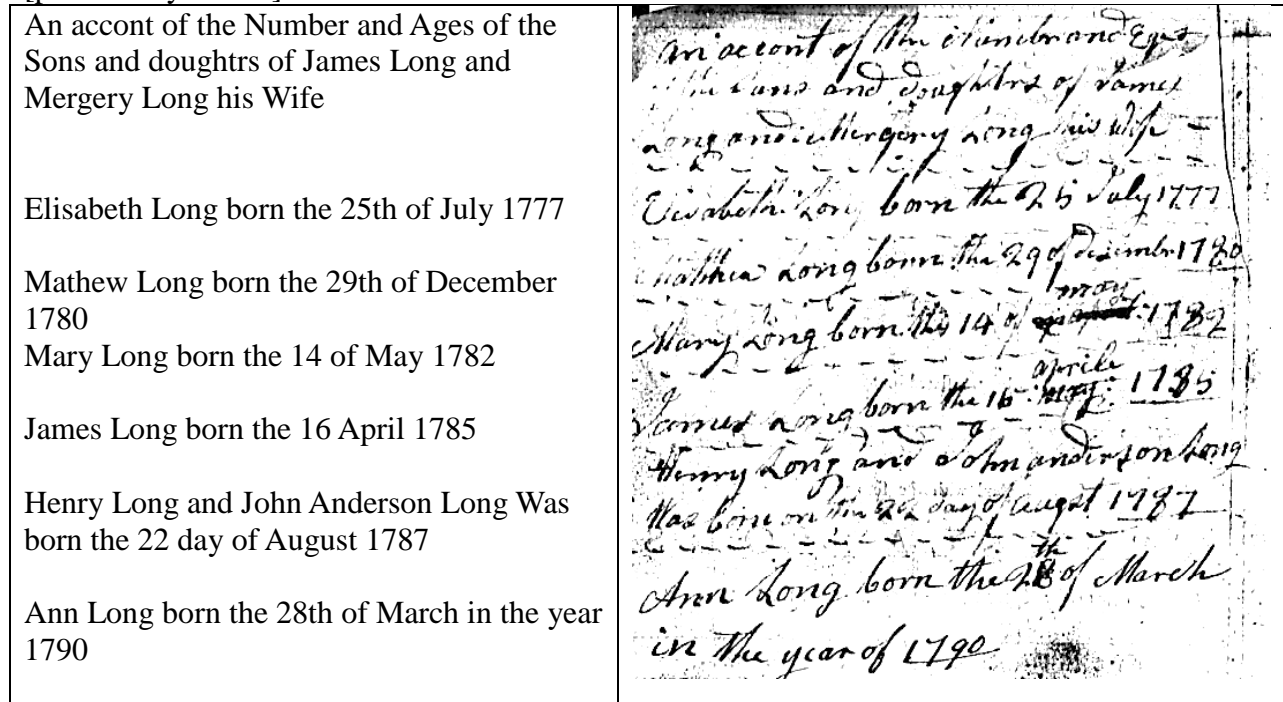 An accont of the Number and Ages of the
Sons and doughtrs of James Long and
Mergery Long his Wife
Elisabeth Long born the 25th of July 1777
Mathew Long born the 29th of December
1780
Mary Long born the 14 of May 1782
James Long born the 16 April 1785
Henry Long and John Anderson Long Was
born the 22 day of August 1787
Ann Long born the 28th of March in the year
1790
an accont of the Numbr and Eges
of the Sans and doughtrs of James
Long and Mergery Long his wife
Elisabeth Long born the 25 July 1777
Mathew Long born the 29 of desembr 1780
may
Mary Long born the 14 of 1782
aprile
James Long born the 16 may 1785
Henry Long and John anderson Long
Was born on the 22 day of augst 1787
th
Ann Long born the 28 of March
in the year of 1790